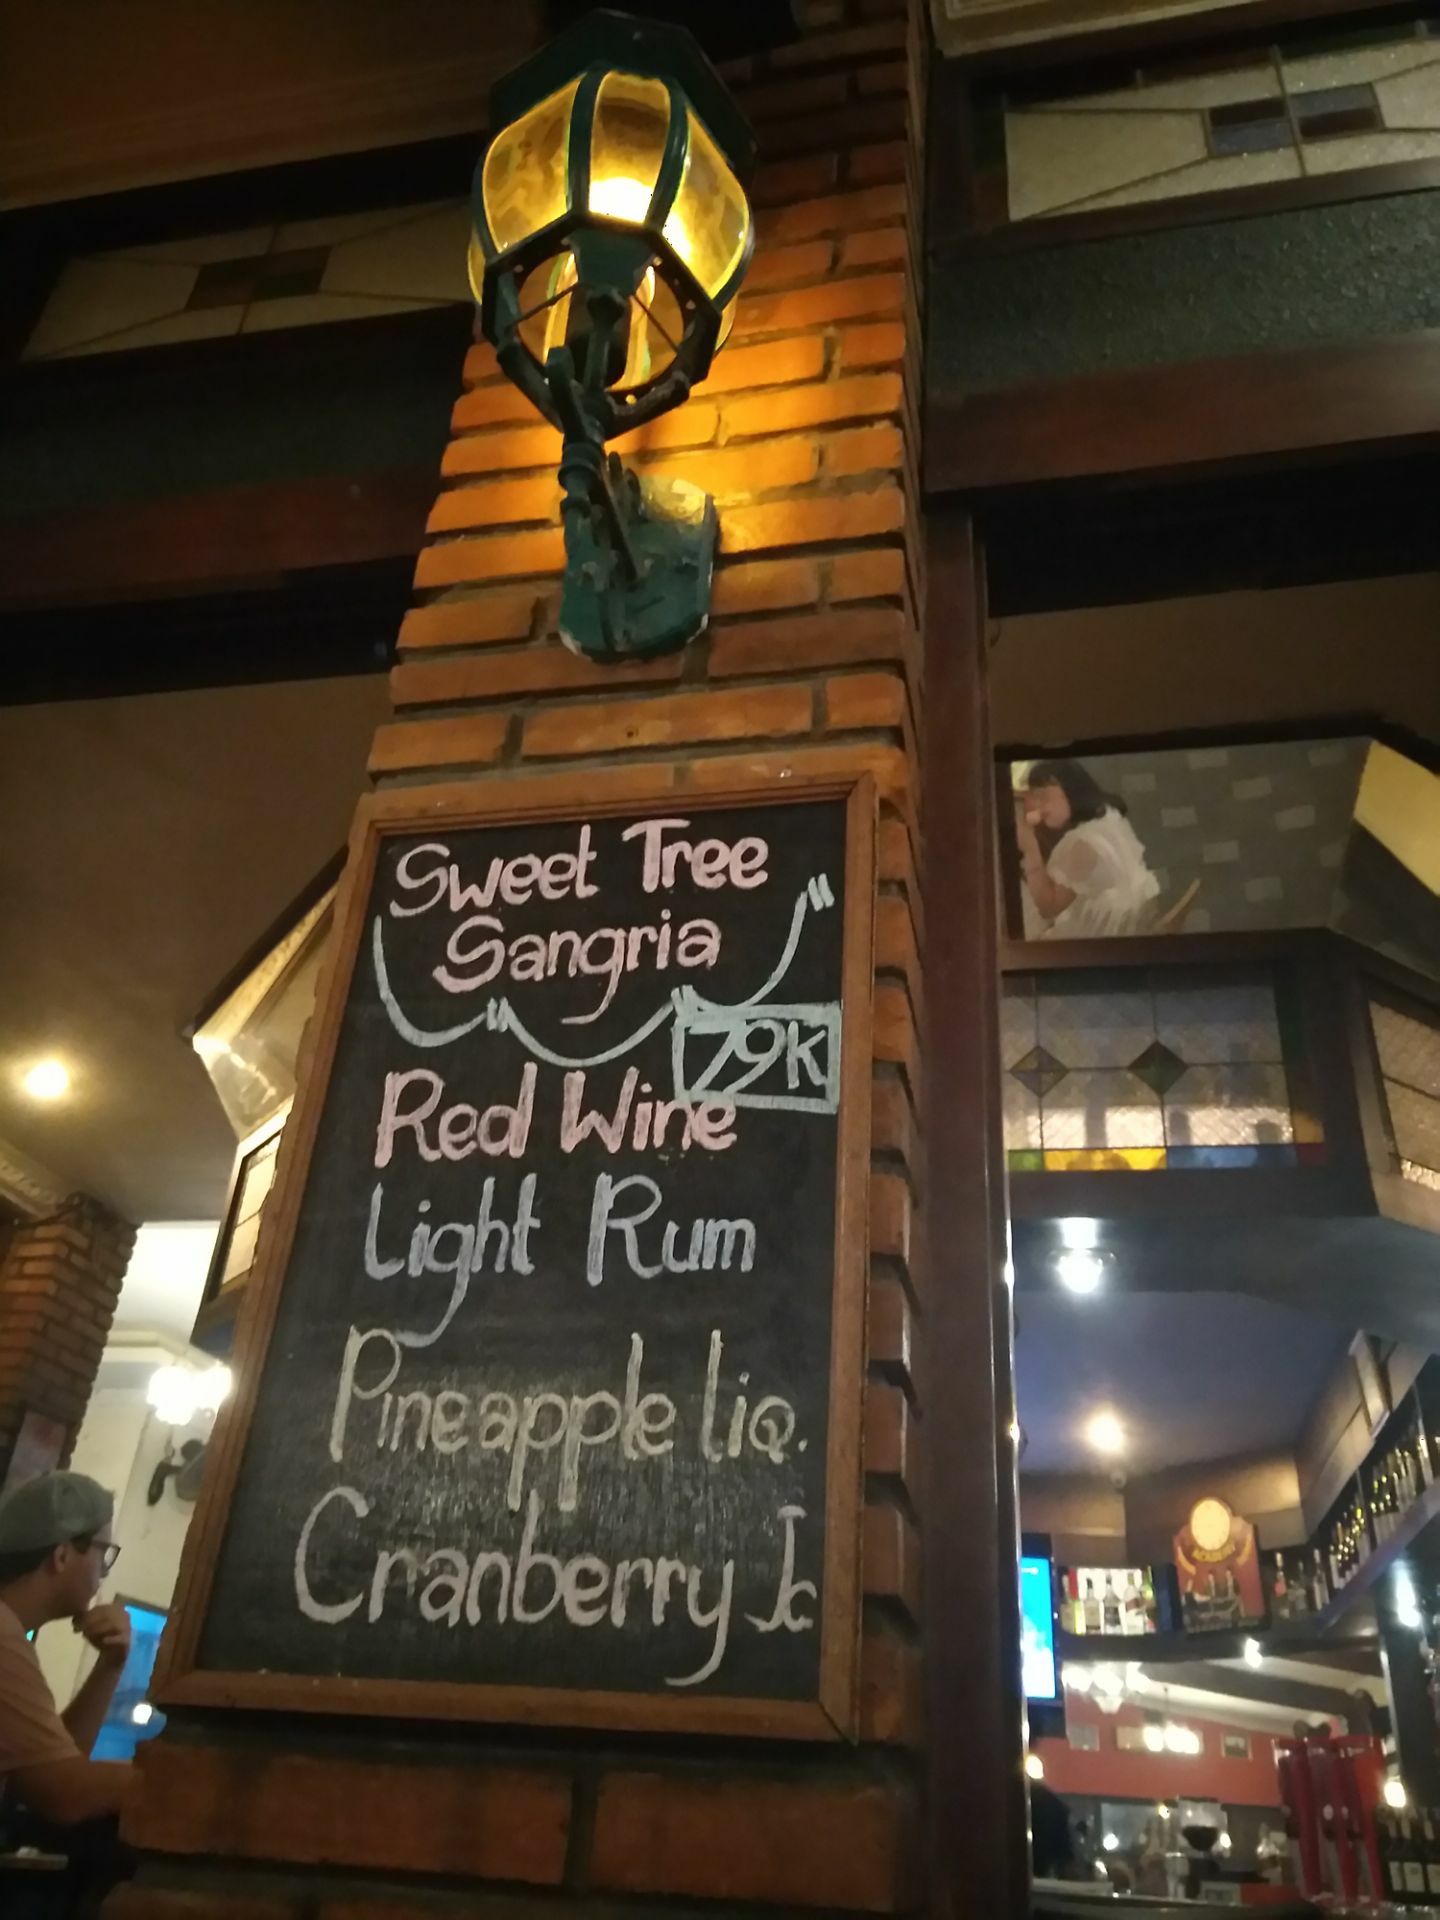 Sweet Tree
Sangria
79K
Red Wine
Light Rum
Pineapple liq.
Cranberry Jc